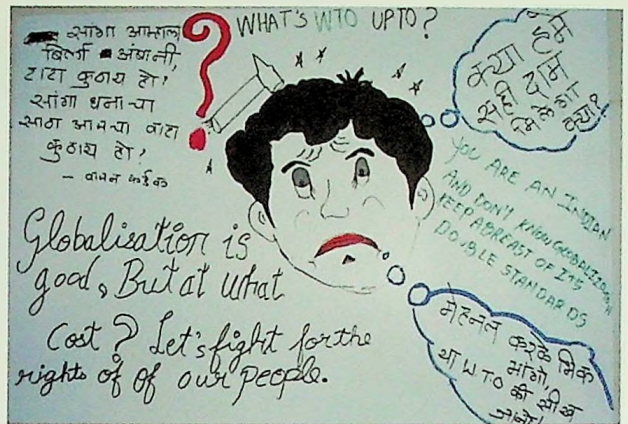 WHAT'S WTO UPTO?
सांगा आम्हाला
बिर्ला अंबानी,
टाटा कुठाय हो?
सांगा धनाचा
साठा आमचा वाटा
कुठाय हो?
- वामन कर्डक
?
क्या हम
सही दाम
क्या?
YOU ARE AN INDIAN
AND DON'T KNOW GLOBALIZATION
KEEP ABREAST OF ITS
DOUBLE STANDARDS
Globalisation is
good, But at what
Cost? Let's fight for the
rights of of our people.
मेहनत करके भिक
मांगो,
या WTO की सीख